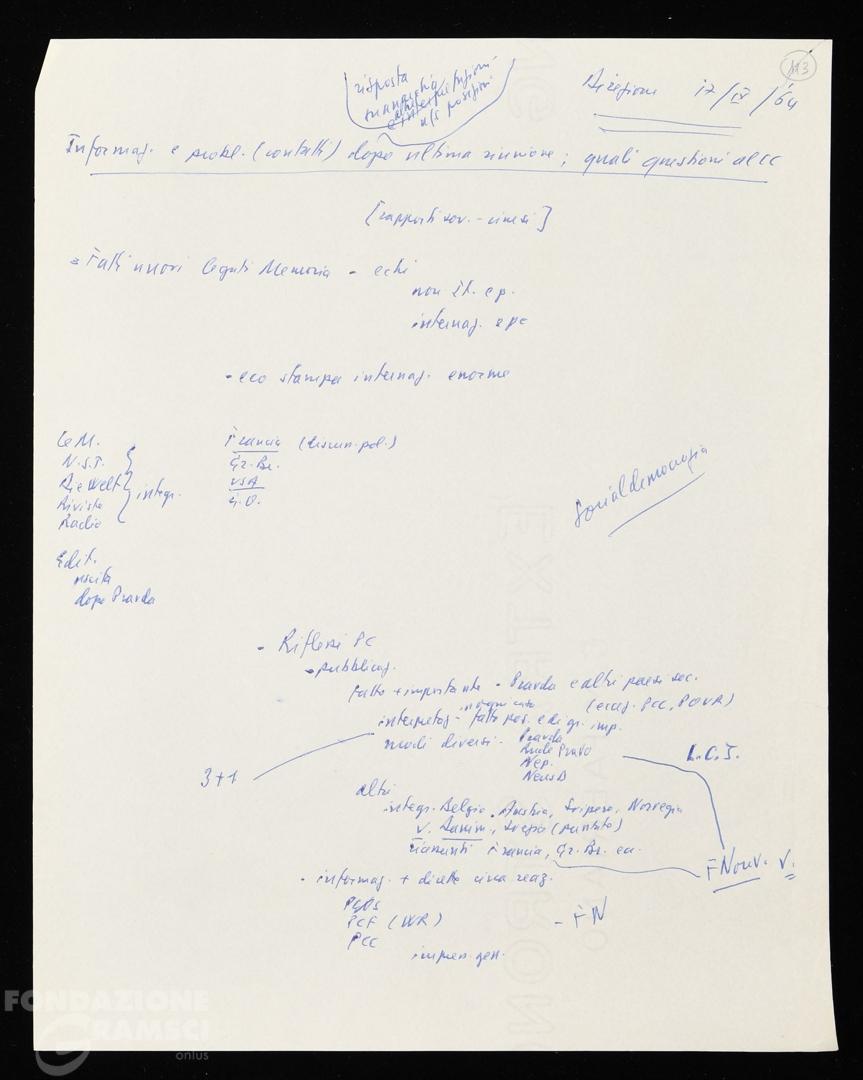 113
risposta
Direzione 17/IX/64
n/s posizioni
Informaz. e probl. (contatti) dopo ultima riunione; quali questioni al CC
[rapporti sov.-cinesi]
Fatti nuovi legati Memoria - echi
non it. e p.
internaz. e pc
- eco stampa internaz. enorme
Le M.
N.S.T.
Die Welt
Rivista
Radio
integr.
Francia (discuss. pol.)
Gr. Br.
USA
G.O.
Socialdemocrazia
Edit.
uscita
dopo Pravda
- Riflessi PC
- pubblicaz.
fatto + importante - Pravda e altri paesi soc.
(eccez. PCC, POUA)
interpretaz. - fatto pos. e di gr. imp.
modi diversi - Pravda
Rude Pravo
Nep.
Neues D
L.C.I.
3+1
altri
integr. Belgio, Austria, Svizzera, Norvegia
v. Danim., Svezia (puntata)
riassunti Francia, Gr. Br. ecc.
FNouv. V.
- informaz. + dirette circa reaz.
PCUS
PCF (WR)
- FN
PCC
impress. gen.
FONDAZIONE
GRAMSCI
onlus